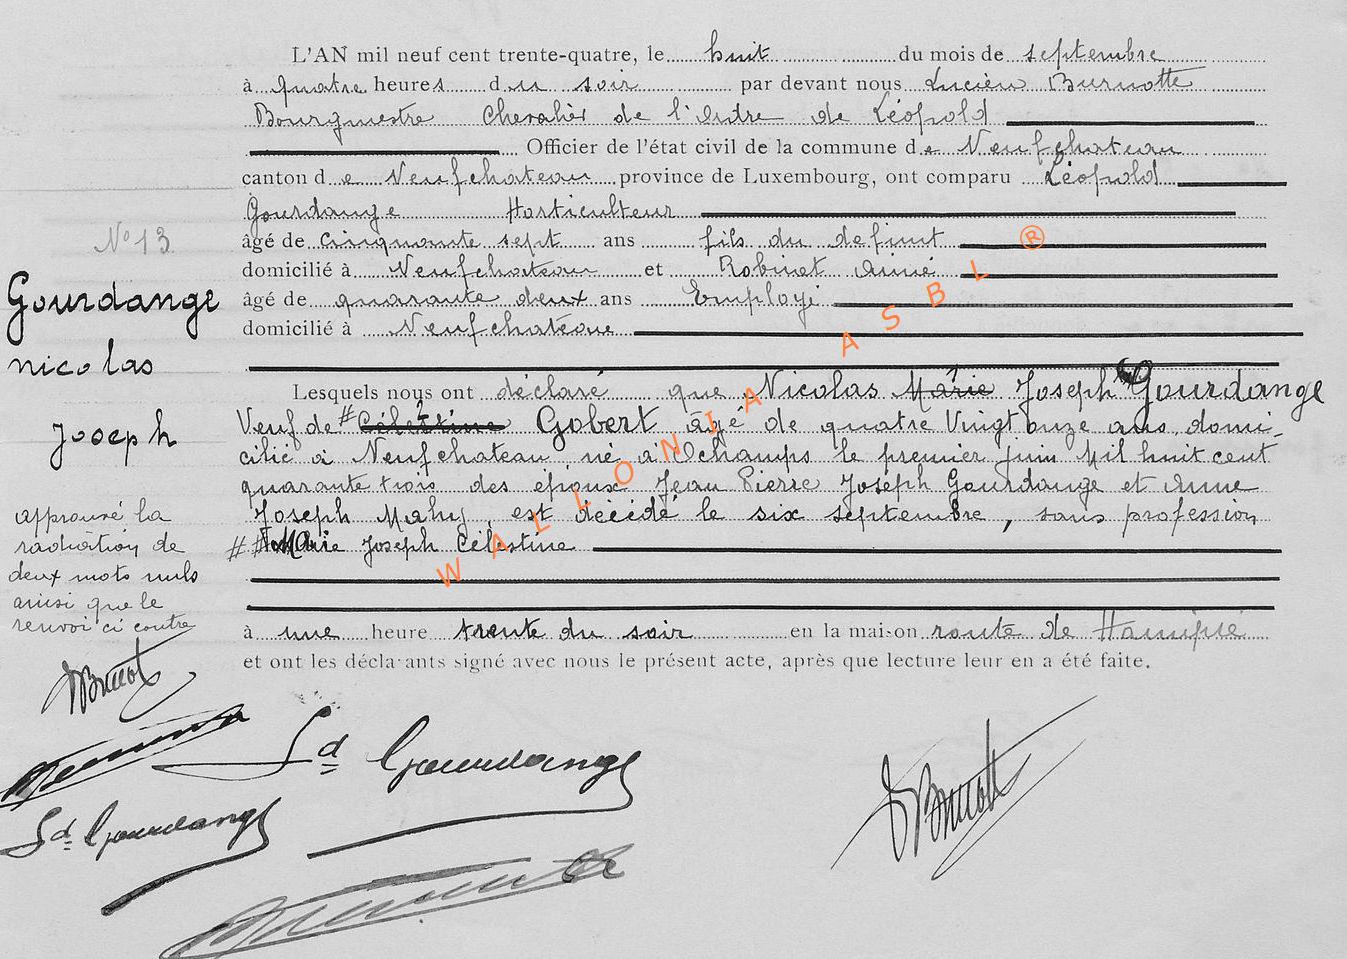 L'AN mil neuf cent trente-quatre, le huit du mois de septembre
à quatre heures du soir par devant nous Lucien Burnotte
Bourgmestre Chevalier de l'Ordre de Léopold
Officier de l'état civil de la commune de Neufchateau
canton de Neufchateau province de Luxembourg, ont comparu Léopold
Gourdange Horticulteur
N° 13
âgé de cinquante sept ans fils du defunt
domicilié à Neufchateau et Robinet Aimé
Gourdange
âgé de quarante deux ans Employé
domicilié à Neufchateau
nicolas
Lesquels nous ont déclaré que Nicolas Marie Joseph Gourdange
Joseph
Veuf de # Célestine Gobert âgé de quatre Vingt onze ans, domi-
cilié à Neufchateau, né à Ochamps le premier juin Mil huit cent
quarante trois des époux Jean Pierre Joseph Gourdange et Anne
Joseph Mahy, est décédé le six septembre, sans profession
## Marie Joseph Célestine
approuvé la
radiation de
deux mots nuls
ainsi que le
renvoi ci contre
à une heure trente du soir en la maison route de Hamipré
et ont les déclarants signé avec nous le présent acte, après que lecture leur en a été faite.
LBurnotte
Ld Gourdange
Ld Gourdange
LBurnotte
WALLONIA ASBL ®